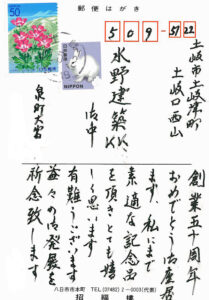 郵便はがき
50
NIPPON
509-5122
土岐市土岐津町
土岐口西山
水野建築KK
御中
泉町大富
創業五十周年
おめでとう御座居
ます 私にまで
素適な記念品
を頂きとても嬉
しく思います
有難うございます
益々の御発展を
祈念致します
八日市市本町 TEL (07482) 2-0003(代表)
招福樓